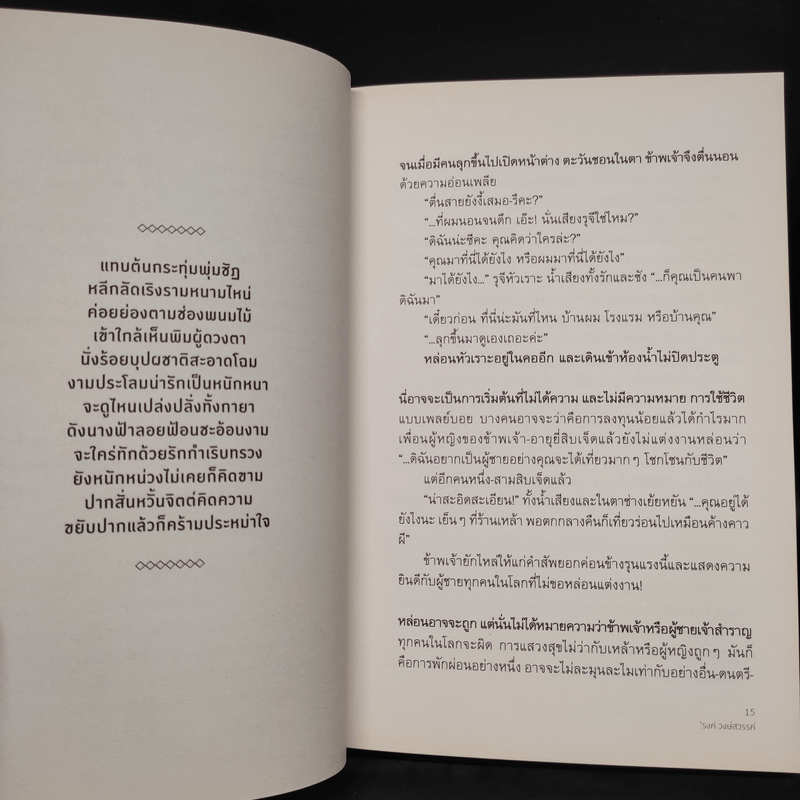 แทบต้นกระทุ่มพุ่มชัฏ
หลีกลัดเริงรามหนามไหน่
ค่อยย่องตามช่องพนมไม้
เข้าใกล้เห็นพิมผู้ดวงตา
นั่งร้อยบุปผชาติสะอาดโฉม
งามประโลมน่ารักเป็นหนักหนา
จะดูไหนเปล่งปลั่งทั้งกายา
ดังนางฟ้าลอยฟ้อนชะอ้อนงาม
จะใคร่ทักด้วยรักกำเริบทรวง
ยังหนักหน่วงไม่เคยก็คิดขาม
ปากสั่นหวั้นจิตต์คิดความ
ขยับปากแล้วก็คร้ามประหม่าใจ
จนเมื่อมีคนลุกขึ้นไปเปิดหน้าต่าง ตะวันชอนในตา ข้าพเจ้าจึงตื่นนอน
ด้วยความอ่อนเพลีย
“ตื่นสายยังงี้เสมอ-รึคะ?”
“...ที่ผมนอนจนดึก เอ๊ะ! นั่นเสียงรุจีใช่ไหม?”
“ดิฉันน่ะซีคะ คุณคิดว่าใครล่ะ?”
“คุณมาที่นี่ได้ยังไง หรือผมมาที่นี่ได้ยังไง”
“มาได้ยังไง...” รุจีหัวเราะ น้ำเสียงทั้งรักและชัง “...ก็คุณเป็นคนพา
ดิฉันมา”
“เดี๋ยวก่อน ที่นี่น่ะมันที่ไหน บ้านผม โรงแรม หรือบ้านคุณ”
“...ลุกขึ้นมาดูเองเถอะค่ะ”
หล่อนหัวเราะอยู่ในคออีก และเดินเข้าห้องน้ำไม่ปิดประตู
นี่อาจจะเป็นการเริ่มต้นที่ไม่ได้ความ และไม่มีความหมาย การใช้ชีวิต
แบบเพลย์บอย บางคนอาจจะว่าคือการลงทุนน้อยแล้วได้กำไรมาก
เพื่อนผู้หญิงของข้าพเจ้า-อายุยี่สิบเจ็ดแล้วยังไม่แต่งงานหล่อนว่า
“...ดิฉันอยากเป็นผู้ชายอย่างคุณจะได้เที่ยวมากๆ โชกโชนกับชีวิต”
แต่อีกคนหนึ่ง-สามสิบเจ็ดแล้ว
“น่าสะอิดสะเอียน!” ทั้งน้ำเสียงและในตาช่างเย้ยหยัน “...คุณอยู่ได้
ยังไงนะ เย็นๆ ที่ร้านเหล้า พอตกกลางคืนก็เที่ยวร่อนไปเหมือนค้างคาว
ผี”
ข้าพเจ้ายักไหล่ให้แก่คำสัพยอกค่อนข้างรุนแรงนี้และแสดงความ
ยินดีกับผู้ชายทุกคนในโลกที่ไม่ขอหล่อนแต่งงาน!
หล่อนอาจจะถูก แต่นั่นไม่ได้หมายความว่าข้าพเจ้าหรือผู้ชายเจ้าสำราญ
ทุกคนในโลกจะผิด การแสวงสุขไม่ว่ากับเหล้าหรือผู้หญิงถูกๆ มันก็
คือการพักผ่อนอย่างหนึ่ง อาจจะไม่ละมุนละไมเท่ากับอย่างอื่น-ดนตรี-
15
'รงค์ วงษ์สวรรค์